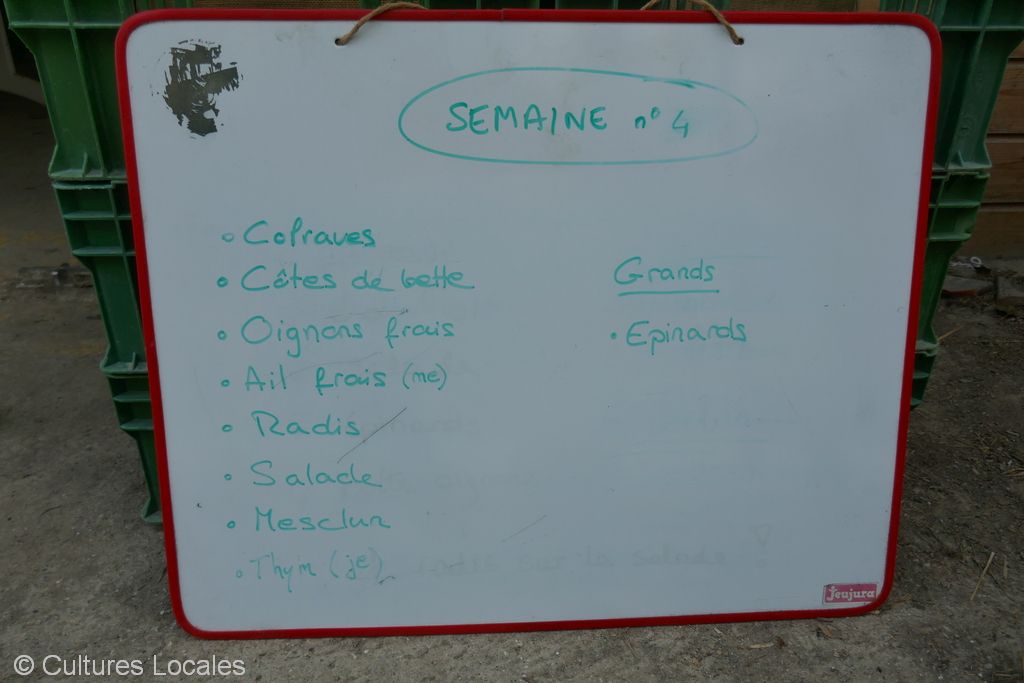 SEMAINE n° 4
• Colraves
• Côtes de bette
• Oignons frais
• Ail frais (me)
• Radis
• Salade
• Mesclun
• Thym (je)
Grands
• Epinards
radis sur la salade !
Jeujura
© Cultures Locales